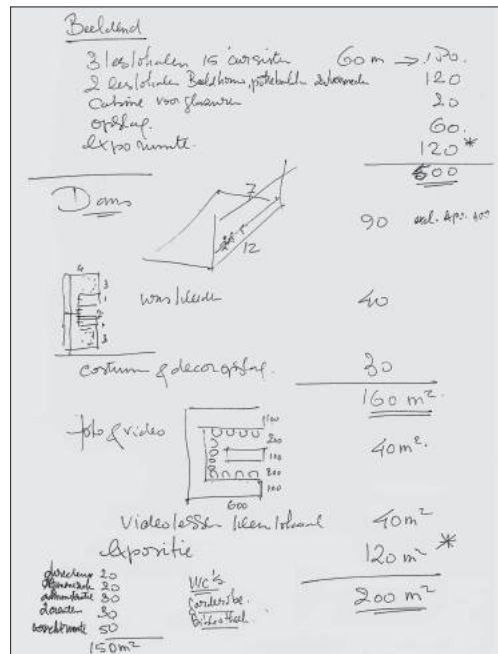 Beeldend
3 leslokalen 15 cursisten 60 m → 180.
2 leslokalen Beeldhouw, pottebakk 120
Cabine voor glazuren 20
opslag. 60.
expo ruimte. 120 *
500
Dans
7
12
90 excl.
4
3
1
3
was/kleed 40
costuum & decoropslag. 30
160 m².
foto & video
1100
200
100
200
100
600
40 m².
Videolessen klein lokaal 40 m²
Expositie 120 m² *
200 m²
directeur 20
20
administratie 30
docenten 30
50
150 m²
WC's
Garderobe.
Bibliotheek